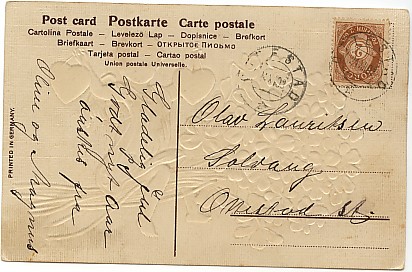 Post card Postkarte Carte postale
Cartolina Postale – Levelező Lap – Dopisnice – Brefkort
Briefkaart – Brevkort – ОТКРЫТОЕ ПИСЬМО
Tarjeta postal – Cartao postal
Union postale Universelle.
PRINTED IN GERMANY.
Glædelig jul
&
Godt nyt Aar
ønskes fra
Oline og Magnus
Olav Lauritsen
Solvang
Onestad st.